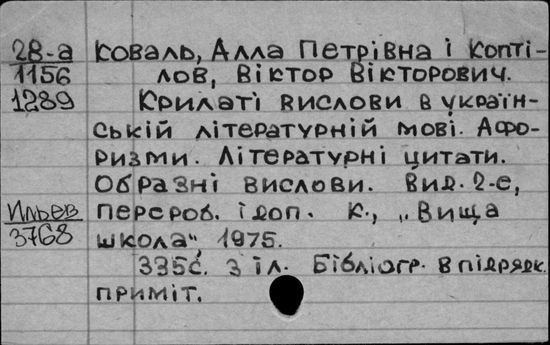 28-а Коваль, Алла Петрівна і Копті-
1156 лов, Віктор Вікторович.
1289 Крилаті вислови в україн-
ській літературній мові. Афо-
ризми. Літературні цитати.
Образні вислови. Вид. 2-е,
Ильев перероб. і доп. К., „Вища
3768 школа", 1975.
335с. з іл. Бібліогр. в підрядк.
приміт.